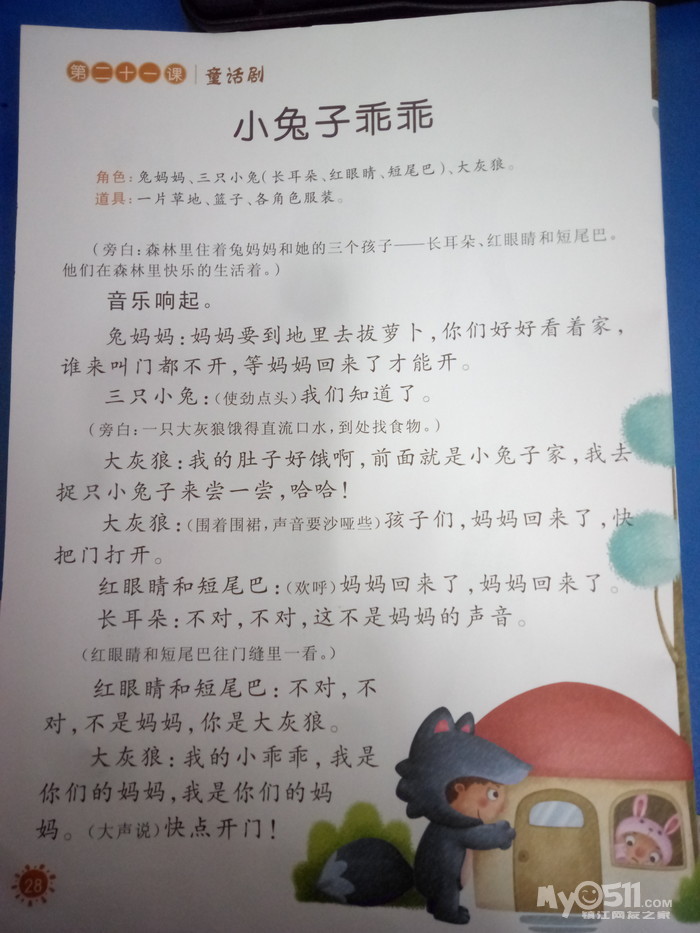 第二十一课 | 童话剧
小兔子乖乖
角色：兔妈妈、三只小兔（长耳朵、红眼睛、短尾巴）、大灰狼。
道具：一片草地、篮子、各角色服装。
（旁白：森林里住着兔妈妈和她的三个孩子——长耳朵、红眼睛和短尾巴。
他们在森林里快乐的生活着。）
音乐响起。
兔妈妈：妈妈要到地里去拔萝卜，你们好好看着家，
谁来叫门都不开，等妈妈回来了才能开。
三只小兔：（使劲点头）我们知道了。
（旁白：一只大灰狼饿得直流口水，到处找食物。）
大灰狼：我的肚子好饿啊，前面就是小兔子家，我去
捉只小兔子来尝一尝，哈哈！
大灰狼：（围着围裙，声音要沙哑些）孩子们，妈妈回来了，快
把门打开。
红眼睛和短尾巴：（欢呼）妈妈回来了，妈妈回来了。
长耳朵：不对，不对，这不是妈妈的声音。
（红眼睛和短尾巴往门缝里一看。）
红眼睛和短尾巴：不对，不
对，不是妈妈，你是大灰狼。
大灰狼：我的小乖乖，我是
你们的妈妈，我是你们的妈
妈。（大声说）快点开门！
28
My0511.com
镇江网友之家